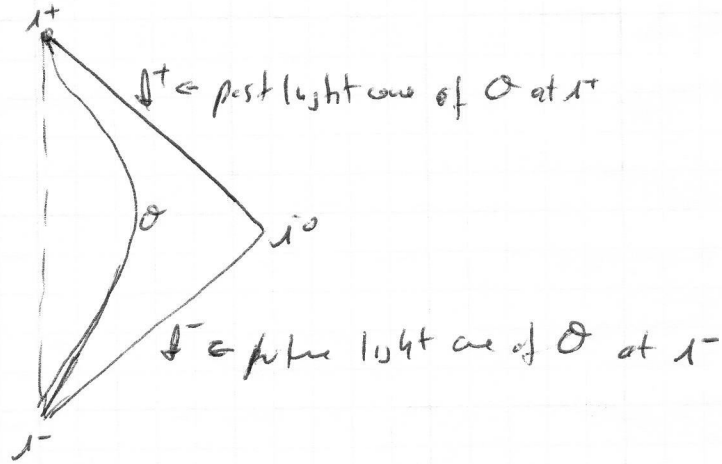 i+
I+ ← past light cone of O at i+
O
i0
I- ← future light cone of O at i-
i-